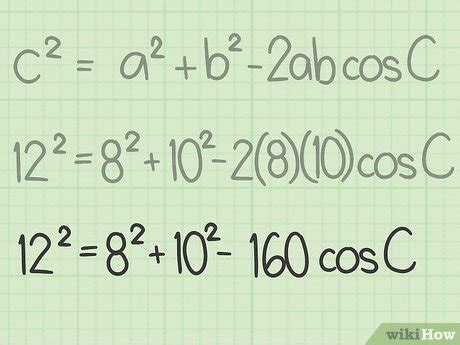 c² = a² + b² - 2ab cos C
12² = 8² + 10² - 2(8)(10) cos C
12² = 8² + 10² - 160 cos C
wikiHow